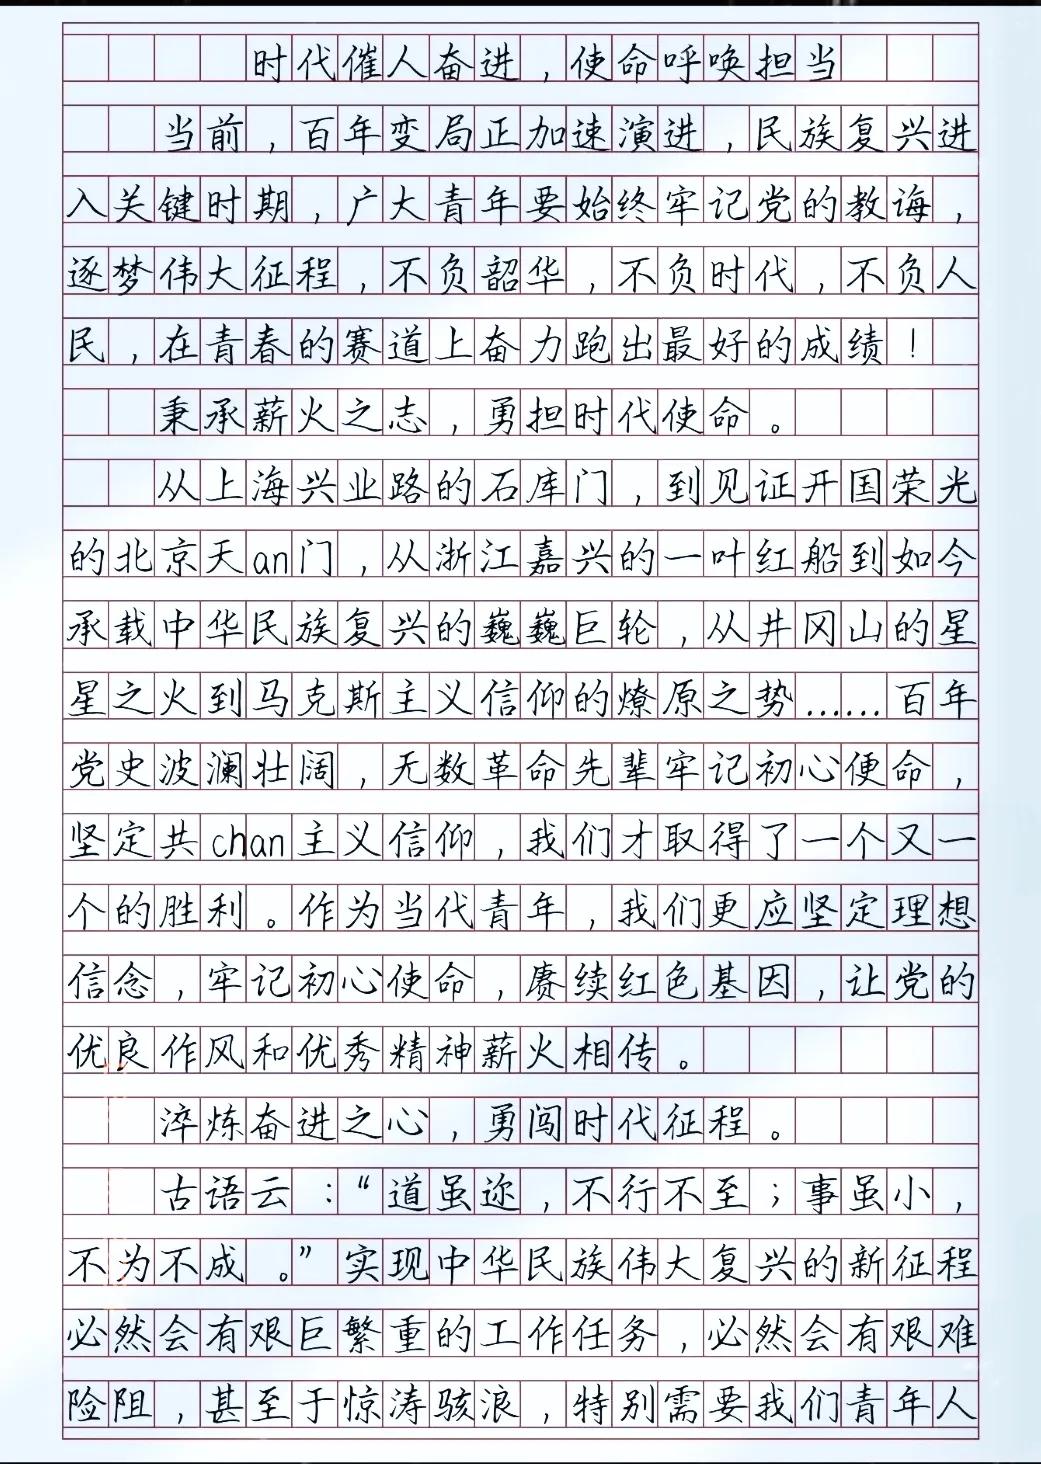 时代催人奋进，使命呼唤担当
当前，百年变局正加速演进，民族复兴进
入关键时期，广大青年要始终牢记党的教诲，
逐梦伟大征程，不负韶华，不负时代，不负人
民，在青春的赛道上奋力跑出最好的成绩！
秉承薪火之志，勇担时代使命。
从上海兴业路的石库门，到见证开国荣光
的北京天an门，从浙江嘉兴的一叶红船到如今
承载中华民族复兴的巍巍巨轮，从井冈山的星
星之火到马克斯主义信仰的燎原之势……百年
党史波澜壮阔，无数革命先辈牢记初心使命，
坚定共chan主义信仰，我们才取得了一个又一
个的胜利。作为当代青年，我们更应坚定理想
信念，牢记初心使命，赓续红色基因，让党的
优良作风和优秀精神薪火相传。
淬炼奋进之心，勇闯时代征程。
古语云：“道虽迩，不行不至；事虽小，
不为不成。”实现中华民族伟大复兴的新征程
必然会有艰巨繁重的工作任务，必然会有艰难
险阻，甚至于惊涛骇浪，特别需要我们青年人